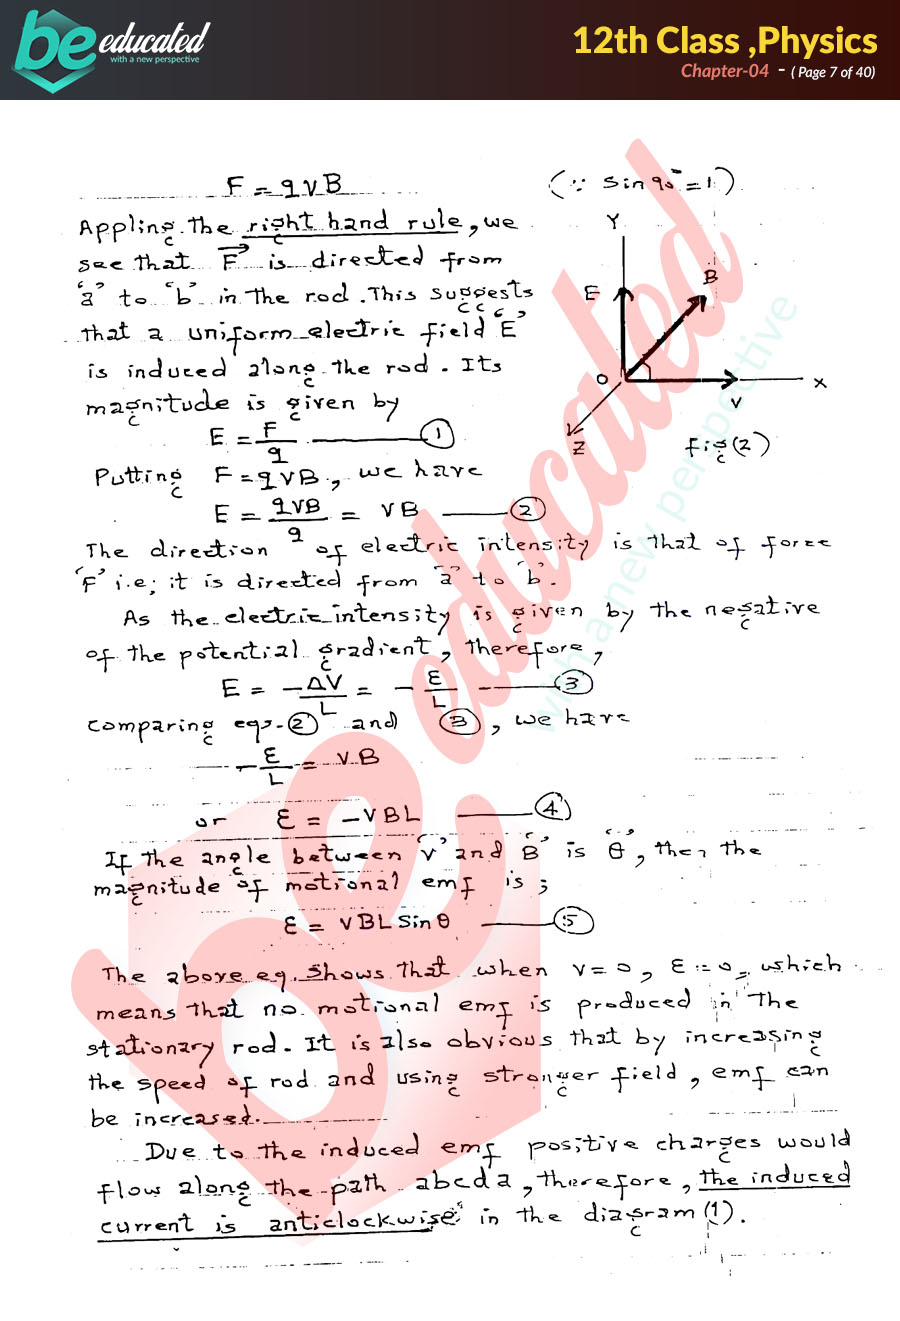 be educated
with a new perspective
12th Class ,Physics
Chapter-04 - ( Page 7 of 40)
F = qVB (∵ Sin 90° = 1)
Appling the right hand rule, we
see that F⃗ is directed from
'a' to 'b' in the rod. This suggests
that a uniform electric field 'E'
is induced along the rod. Its
magnitude is given by
E = F/q ——— (1)
Putting F = qVB, we have
E = qVB/q = VB ——— (2)
Y
B
E
O
X
V
Z
fig(2)
The direction of electric intensity is that of force
'F' i.e; it is directed from 'a' to 'b'.
As the electric intensity is given by the negative
of the potential gradient, therefore,
E = -ΔV/L = - Ɛ/L ——— (3)
comparing eqs. (2) and (3), we have
- Ɛ/L = VB
or Ɛ = -VBL ——— (4)
If the angle between 'V' and 'B' is 'θ', then the
magnitude of motional emf is ;
Ɛ = VBL Sin θ ——— (5)
The above eq. shows that when V = 0, Ɛ = 0, which
means that no motional emf is produced in the
stationary rod. It is also obvious that by increasing
the speed of rod and using stronger field, emf can
be increased.
Due to the induced emf positive charges would
flow along the path abcda, therefore, the induced
current is anticlockwise in the diagram (1).
be educated
with a new perspective